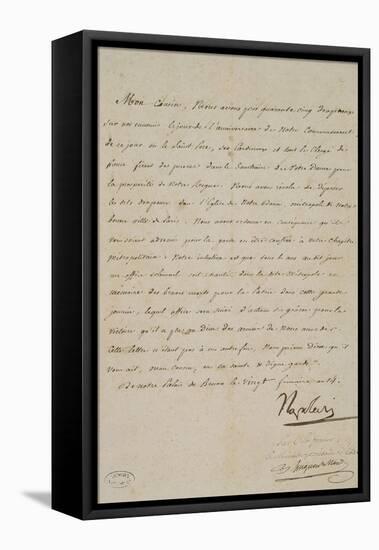 Mon Cousin, Nous avons pris quarante cinq Drapeaux
sur nos ennemis le jour de l'anniversaire de Notre Couronnement
de ce jour où le Saint Père, ses Cardinaux et tout le Clergé de
france firent des prières dans le Sanctuaire de Notre Dame pour
la prospérité de Notre Règne. Nous avons résolu de déposer
les dits drapeaux dans l'Eglise de Notre Dame, métropole de Notre
bonne ville de Paris. Nous avons ordonné en conséquence qu'ils
vous soient adressés pour la garde en être confiée à votre Chapitre
métropolitain. Notre intention est que tous les ans au dit jour
un office solennel soit chanté dans la dite Métropole en
mémoire des braves morts pour la Patrie dans cette grande
journée, lequel office sera suivi d'actions de grâces pour la
victoire qu'il a plu au Dieu des armées de Nous
Cette Lettre n'étant pas à une autre fin, Nous prions Dieu qu'il
vous ait, mon cousin, en sa sainte et digne garde.
De notre Palais de Brunn le vingt frimaire an 14.
Napoléon